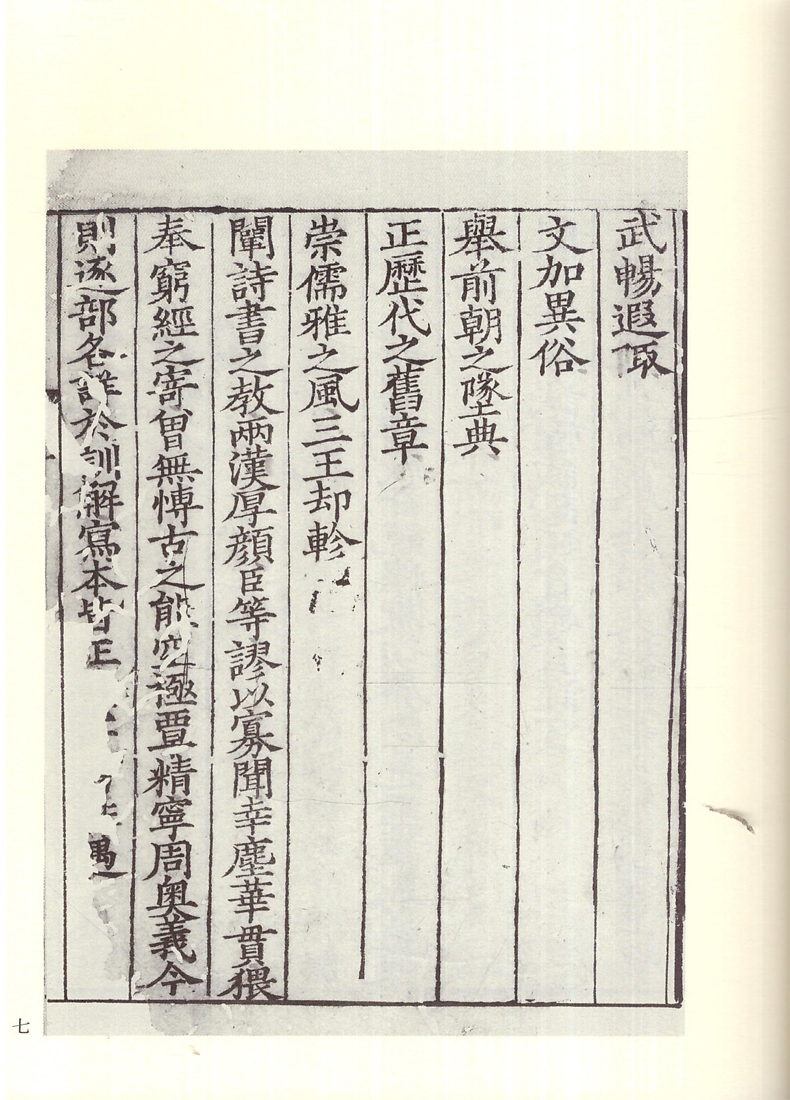 武暢遐陬
文加異俗
舉前朝之墜典
正歷代之舊章
崇儒雅之風三王却軫
闡詩書之教兩漢厚顔臣等謬以寡聞幸塵華貫猥
奉窮經之寄曾無愽古之能究極覃精寧周奥義今
則逐部各詳於訓解寫本皆正
遇
七